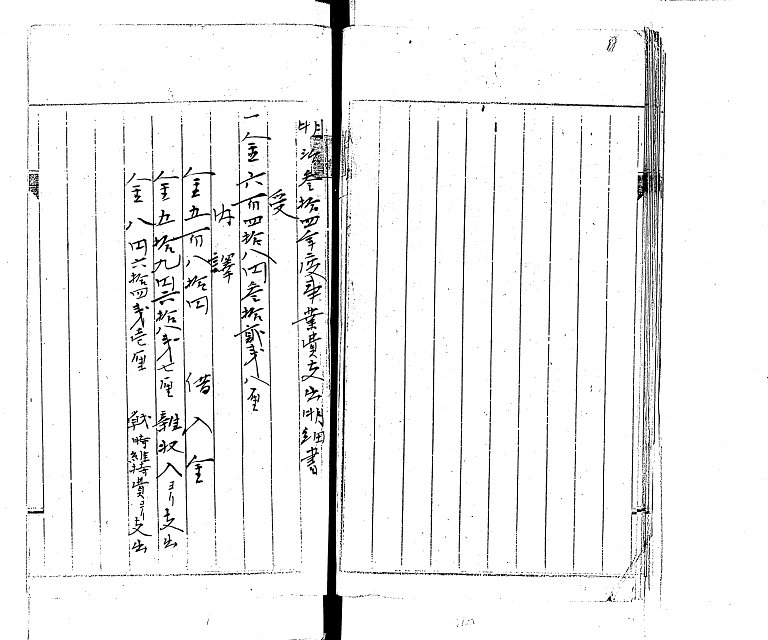 明治叁拾四年度事業費支出明細書
受
一金六百四拾八円叁拾貳戔八厘
内譯
金五百八拾円 借入金
金五拾九円六拾八戔七厘 雜収入ヨリ支出
金八円六拾四戔壱厘 戰時維持費ヨリ支出